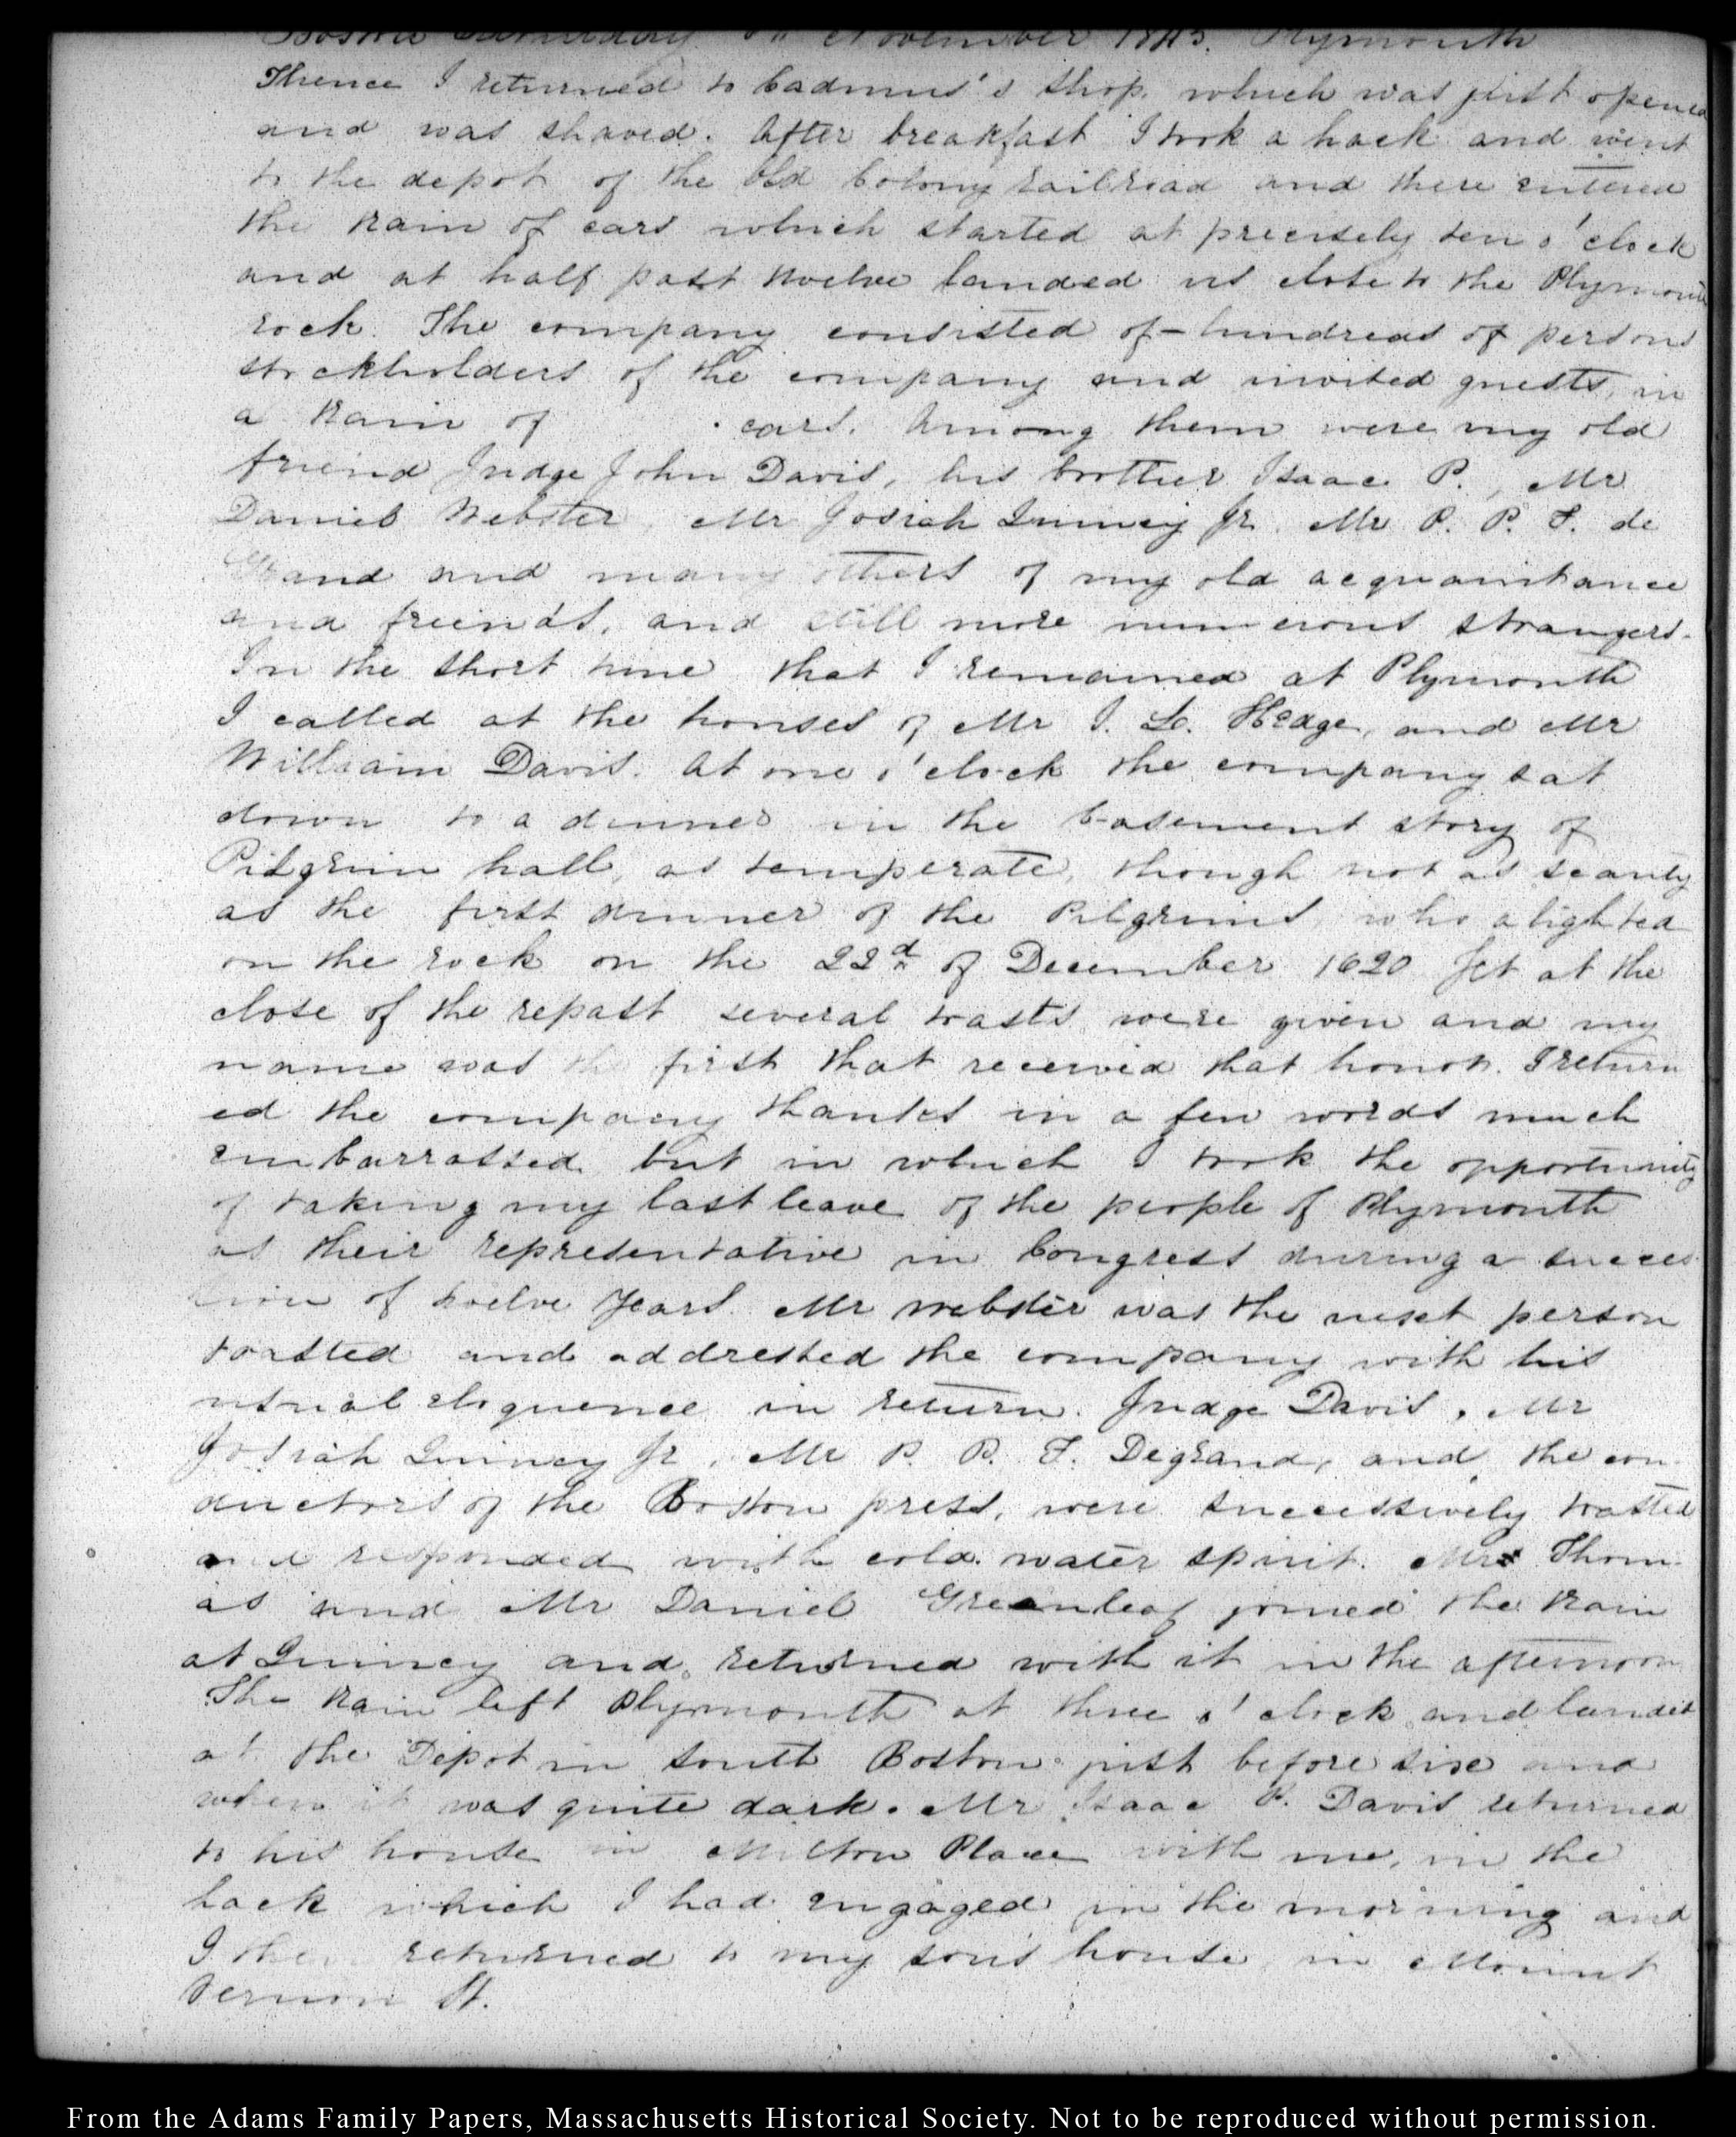 Boston Saturday November 1845. Plymouth
Thence I returned to Cadmus's shop. which was just opened
and was shaved. After breakfast I took a hack and went
to the depot of the Old Colony railroad and there entered
the train of cars which started at precisely ten o'clock
and at half past twelve landed us close to the Plymouth
rock. The company consisted of hundreds of persons
stockholders of the company and invited guests, in
a train of cars. Among them were my old
friend Judge John Davis, his brother Isaac P., Mr
Daniel Webster, Mr Josiah Quincy Jr. Mr P. P. F. de
Grand and many others of my old acquaintance
and friends, and still more numerous strangers.
In the short time that I remained at Plymouth
I called at the houses of Mr I. L. Hedge, and Mr
William Davis. At one o'clock the company sat
down to a dinner in the basement story of
Pilgrim hall, as temperate, though not as scanty
as the first dinner of the Pilgrims who alighted
on the rock on the 22d of December 1620 Yet at the
close of the repast several toasts were given and my
name was the first that received that honor. I return
ed the company thanks in a few words much
embarrassed but in which I took the opportunity
of taking my last leave of the people of Plymouth
as their representative in Congress during a succes
sion of twelve years. Mr Webster was the next person
toasted and addressed the company with his
usual eloquence in return. Judge Davis, Mr
Josiah Quincy Jr, Mr P. P. F. Degrand, and the con-
ductors of the Boston press, were successively toasted
and responded with cold water spirit. Mrs Thom-
as and Mr Daniel Greenleaf joined the train
at Quincy and returned with it in the afternoon
The train left Plymouth at three o'clock and landed
at the Depot in South Boston just before six and
when it was quite dark. Mr Isaac P. Davis returned
to his house in Milton Place with me, in the
hack which I had engaged in the morning and
I then returned to my son's house in Mount
Vernon St.
From the Adams Family Papers, Massachusetts Historical Society. Not to be reproduced without permission.